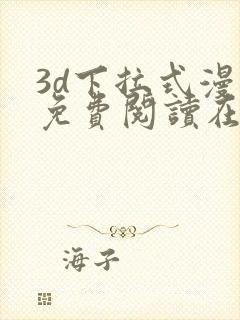 3d下拉式漫
免費閱讀在
海子